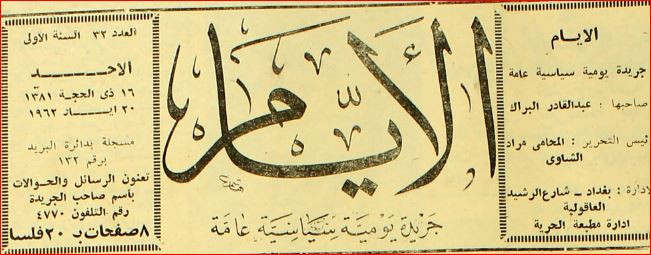 الايام
جريدة يومية سياسية عامة
صاحبها : عبدالقادر البراك
ئيس التحرير : المحامى مراد
الشاوى
لادارة : بغداد ــ شارع الرشيد
العاقولية
ادارة مطبعة الحرية
الأيام
جريدة يومية سياسية عامة
العدد ٣٢ السنة الاولى
الاحـــــــد
١٦ ذى الحجة ١٣٨١
٢٠ ايـــار ١٩٦٢
مسجلة بدائرة البريد
برقم ١٣٢
تعنون الرسائل والحوالات
بأسم صاحب الجريدة
رقم التلفون ٤٧٧٠
٨ صفحات بـ ٢٠ فلسا